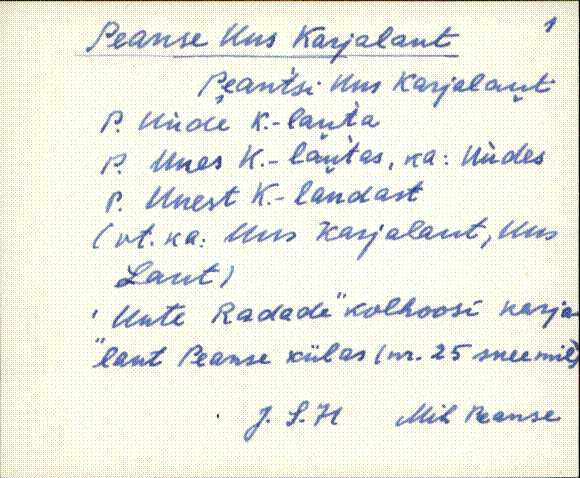 1
Peanse Uus Karjalaut
Peantsi Uus Karjalaut
P. Uude K.-lauta
P. Uues K.-lautas, ka: Uudes
P. Uuest K.-laudast
(vt. ka: Uus Karjalaut, Uus
Laut)
"Uute Radade" kolhoosi karja-
laut Peanse külas (nr. 25 skeemil)
J. S. H Mih Peanse